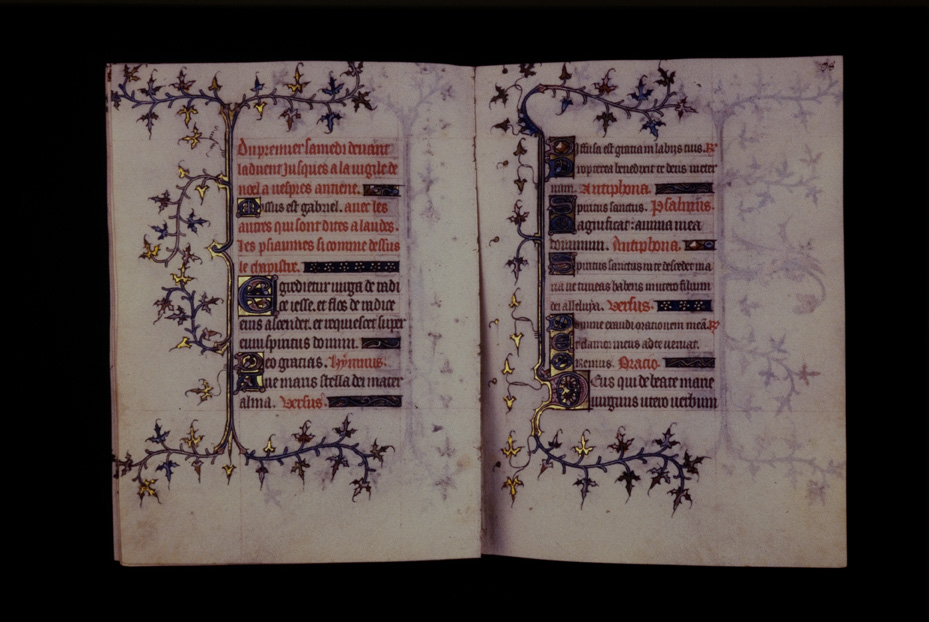 Du premier samedi deuant
laduent jusques a la uigile de
noel a uespres antiene.
Missus est gabriel. auec les
autres qui sont dites a laudes.
Les pseaumes si comme dessus
le chapistre.
Egredietur uirga de radi
ce iesse. et flos de radice
eius ascendet. et requiescet super
eum spiritus domini.
Deo gracias. Hympnus.
Aue maris stella dei mater
alma. Versus.
Diffusa est gratia in labijs tuis. R
Propterea benedixit te deus ineter
num. Antiphona.
Spiritus sanctus. Psalmus.
Magnificat: anima mea
dominum. Antiphona.
Spiritus sanctus in te descendet ma
ria ne timeas habens in utero filium
dei alleluya. Versus.
Domine exaudi orationem meam. R
Et clamor meus ad te ueniat.
Oremus. Oracio.
Deus qui de beate marie
uirginis utero uerbum